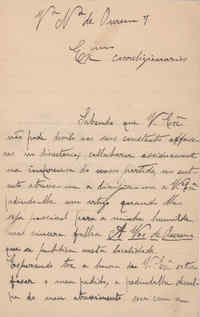 Vª Nª de Ourem 7
Exmo
correligionario
Sabendo que V. Exª
não pode devido aos seus constantes affaze-
res no directorio, collaborar assiduamente
na imprensa do nosso partido, no em-
tanto atrevo-me a dirigir-me a V. Exª
pedindo-lhe um artigo quando lhe
seja possivel para a minha humilde
mas sincera folha A Voz de Ourem
que se publica nesta localidade.
Esperando ter a honra de V. Exª satis-
fazer o meu pedido, e pedindo-lhe descul-
pa do meu atrevimento sou com a